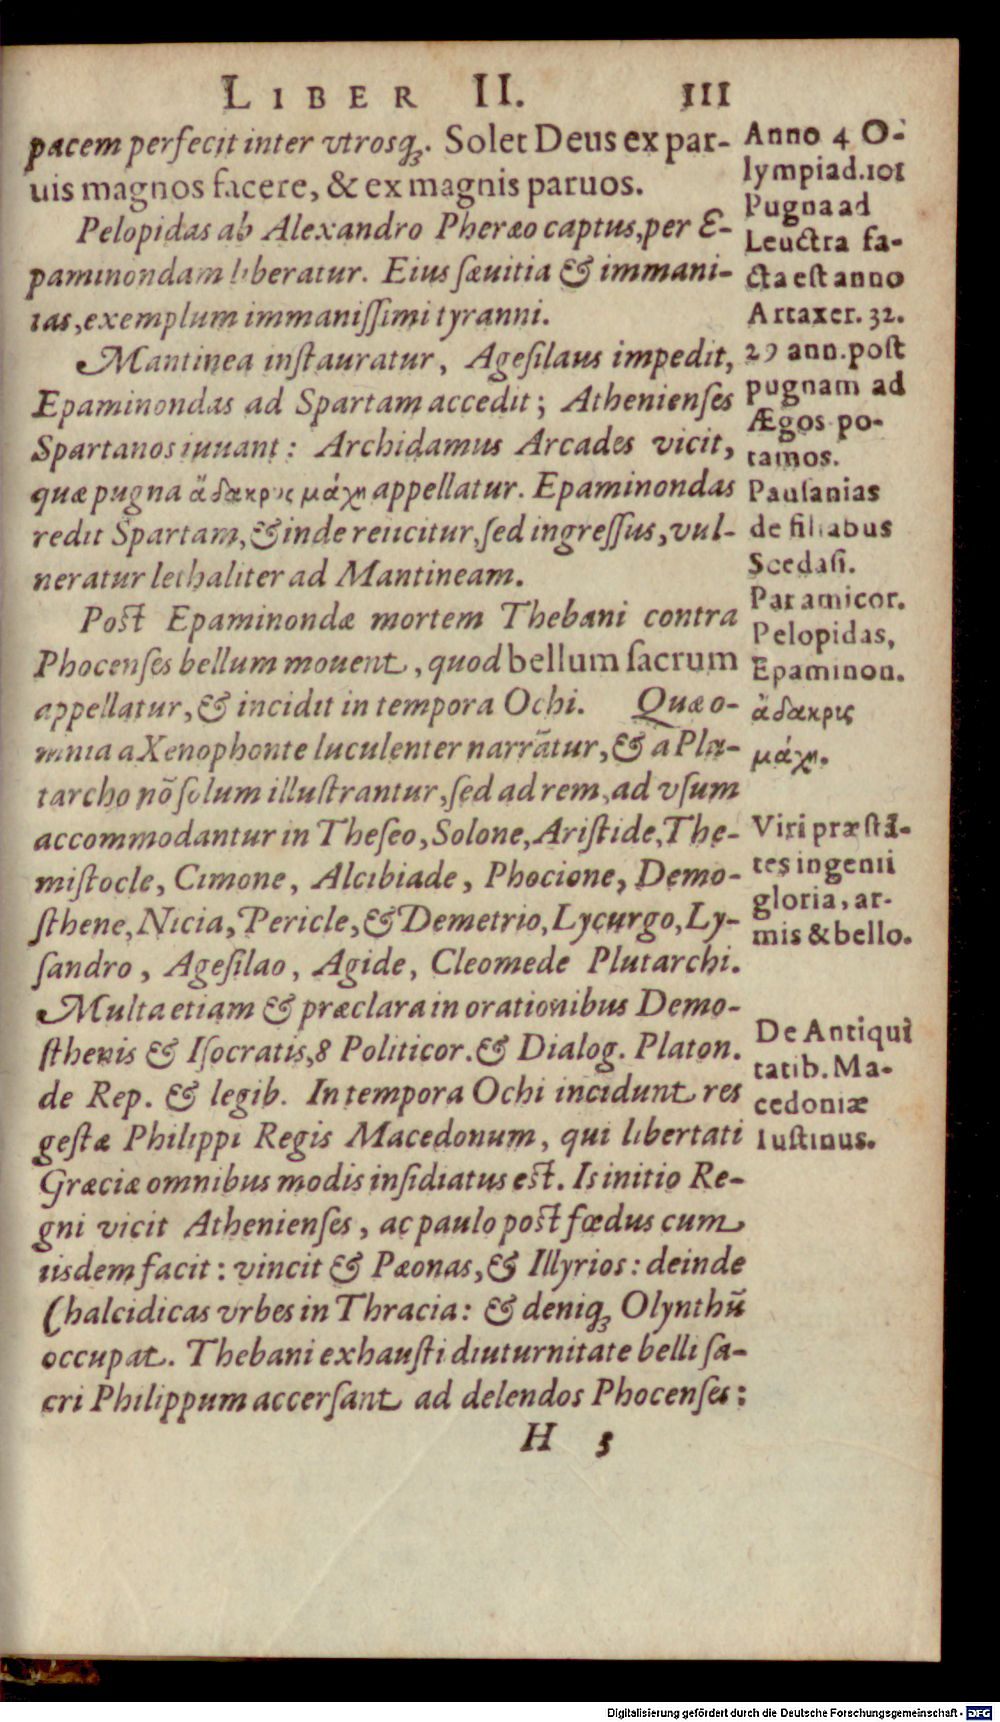 LIBER II. 111
pacem perfecit inter vtrosq́;. Solet Deus ex par-
uis magnos facere, & ex magnis paruos.
Pelopidas ab Alexandro Pheræo captus, per E-
paminondam liberatur. Eius sæuitia & immani-
tas, exemplum immanissimi tyranni.
Mantinea instauratur, Agesilaus impedit,
Epaminondas ad Spartam accedit; Athenienses
Spartanos iuuant: Archidamus Arcades vicit,
quæ pugna ἄδακρις μάχη appellatur. Epaminondas
redit Spartam, & inde reiicitur, sed ingressus, vul-
neratur lethaliter ad Mantineam.
Post Epaminondæ mortem Thebani contra
Phocenses bellum mouent, quod bellum sacrum
appellatur, & incidit in tempora Ochi. Quæ o-
mnia a Xenophonte luculenter narrãtur, & a Plu-
tarcho nõ solum illustrantur, sed ad rem, ad vsum
accommodantur in Theseo, Solone, Aristide, The-
mistocle, Cimone, Alcibiade, Phocione, Demo-
sthene, Nicia, Pericle, & Demetrio, Lycurgo, Ly-
sandro, Agesilao, Agide, Cleomede Plutarchi.
Multa etiam & præclara in orationibus Demo-
sthenis & Isocratis, 8 Politicor. & Dialog. Platon.
de Rep. & legib. In tempora Ochi incidunt res
gestæ Philippi Regis Macedonum, qui libertati
Græciæ omnibus modis insidiatus est. Is initio Re-
gni vicit Athenienses, ac paulo post fœdus cum
iisdem facit: vincit & Pæonas, & Illyrios: deinde
Chalcidicas vrbes in Thracia: & deniq; Olynthũ
occupat. Thebani exhausti diuturnitate belli sa-
cri Philippum accersant ad delendos Phocenses:
H 3
Anno 4 O-
lympiad. 101
Pugna ad
Leuctra fa-
cta est anno
Artaxer. 32.
29 ann. post
pugnam ad
Ægos po-
tamos.
Pausanias
de filiabus
Scedasi.
Par amicor.
Pelopidas,
Epaminon.
ἄδακρις
μάχη.
Viri præstã-
tes ingenii
gloria, ar-
mis & bello.
De Antiqui
tatib. Ma-
cedoniæ
Iustinus.
Digitalisierung gefördert durch die Deutsche Forschungsgemeinschaft - DFG